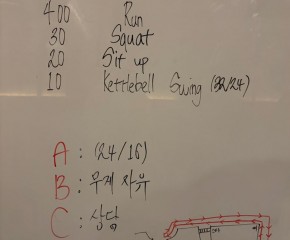 400 Run
30 Squat
20 Sit up
10 Kettlebell Swing (32/24)
A : (24/16)
B : 무게 자유
C : 상담